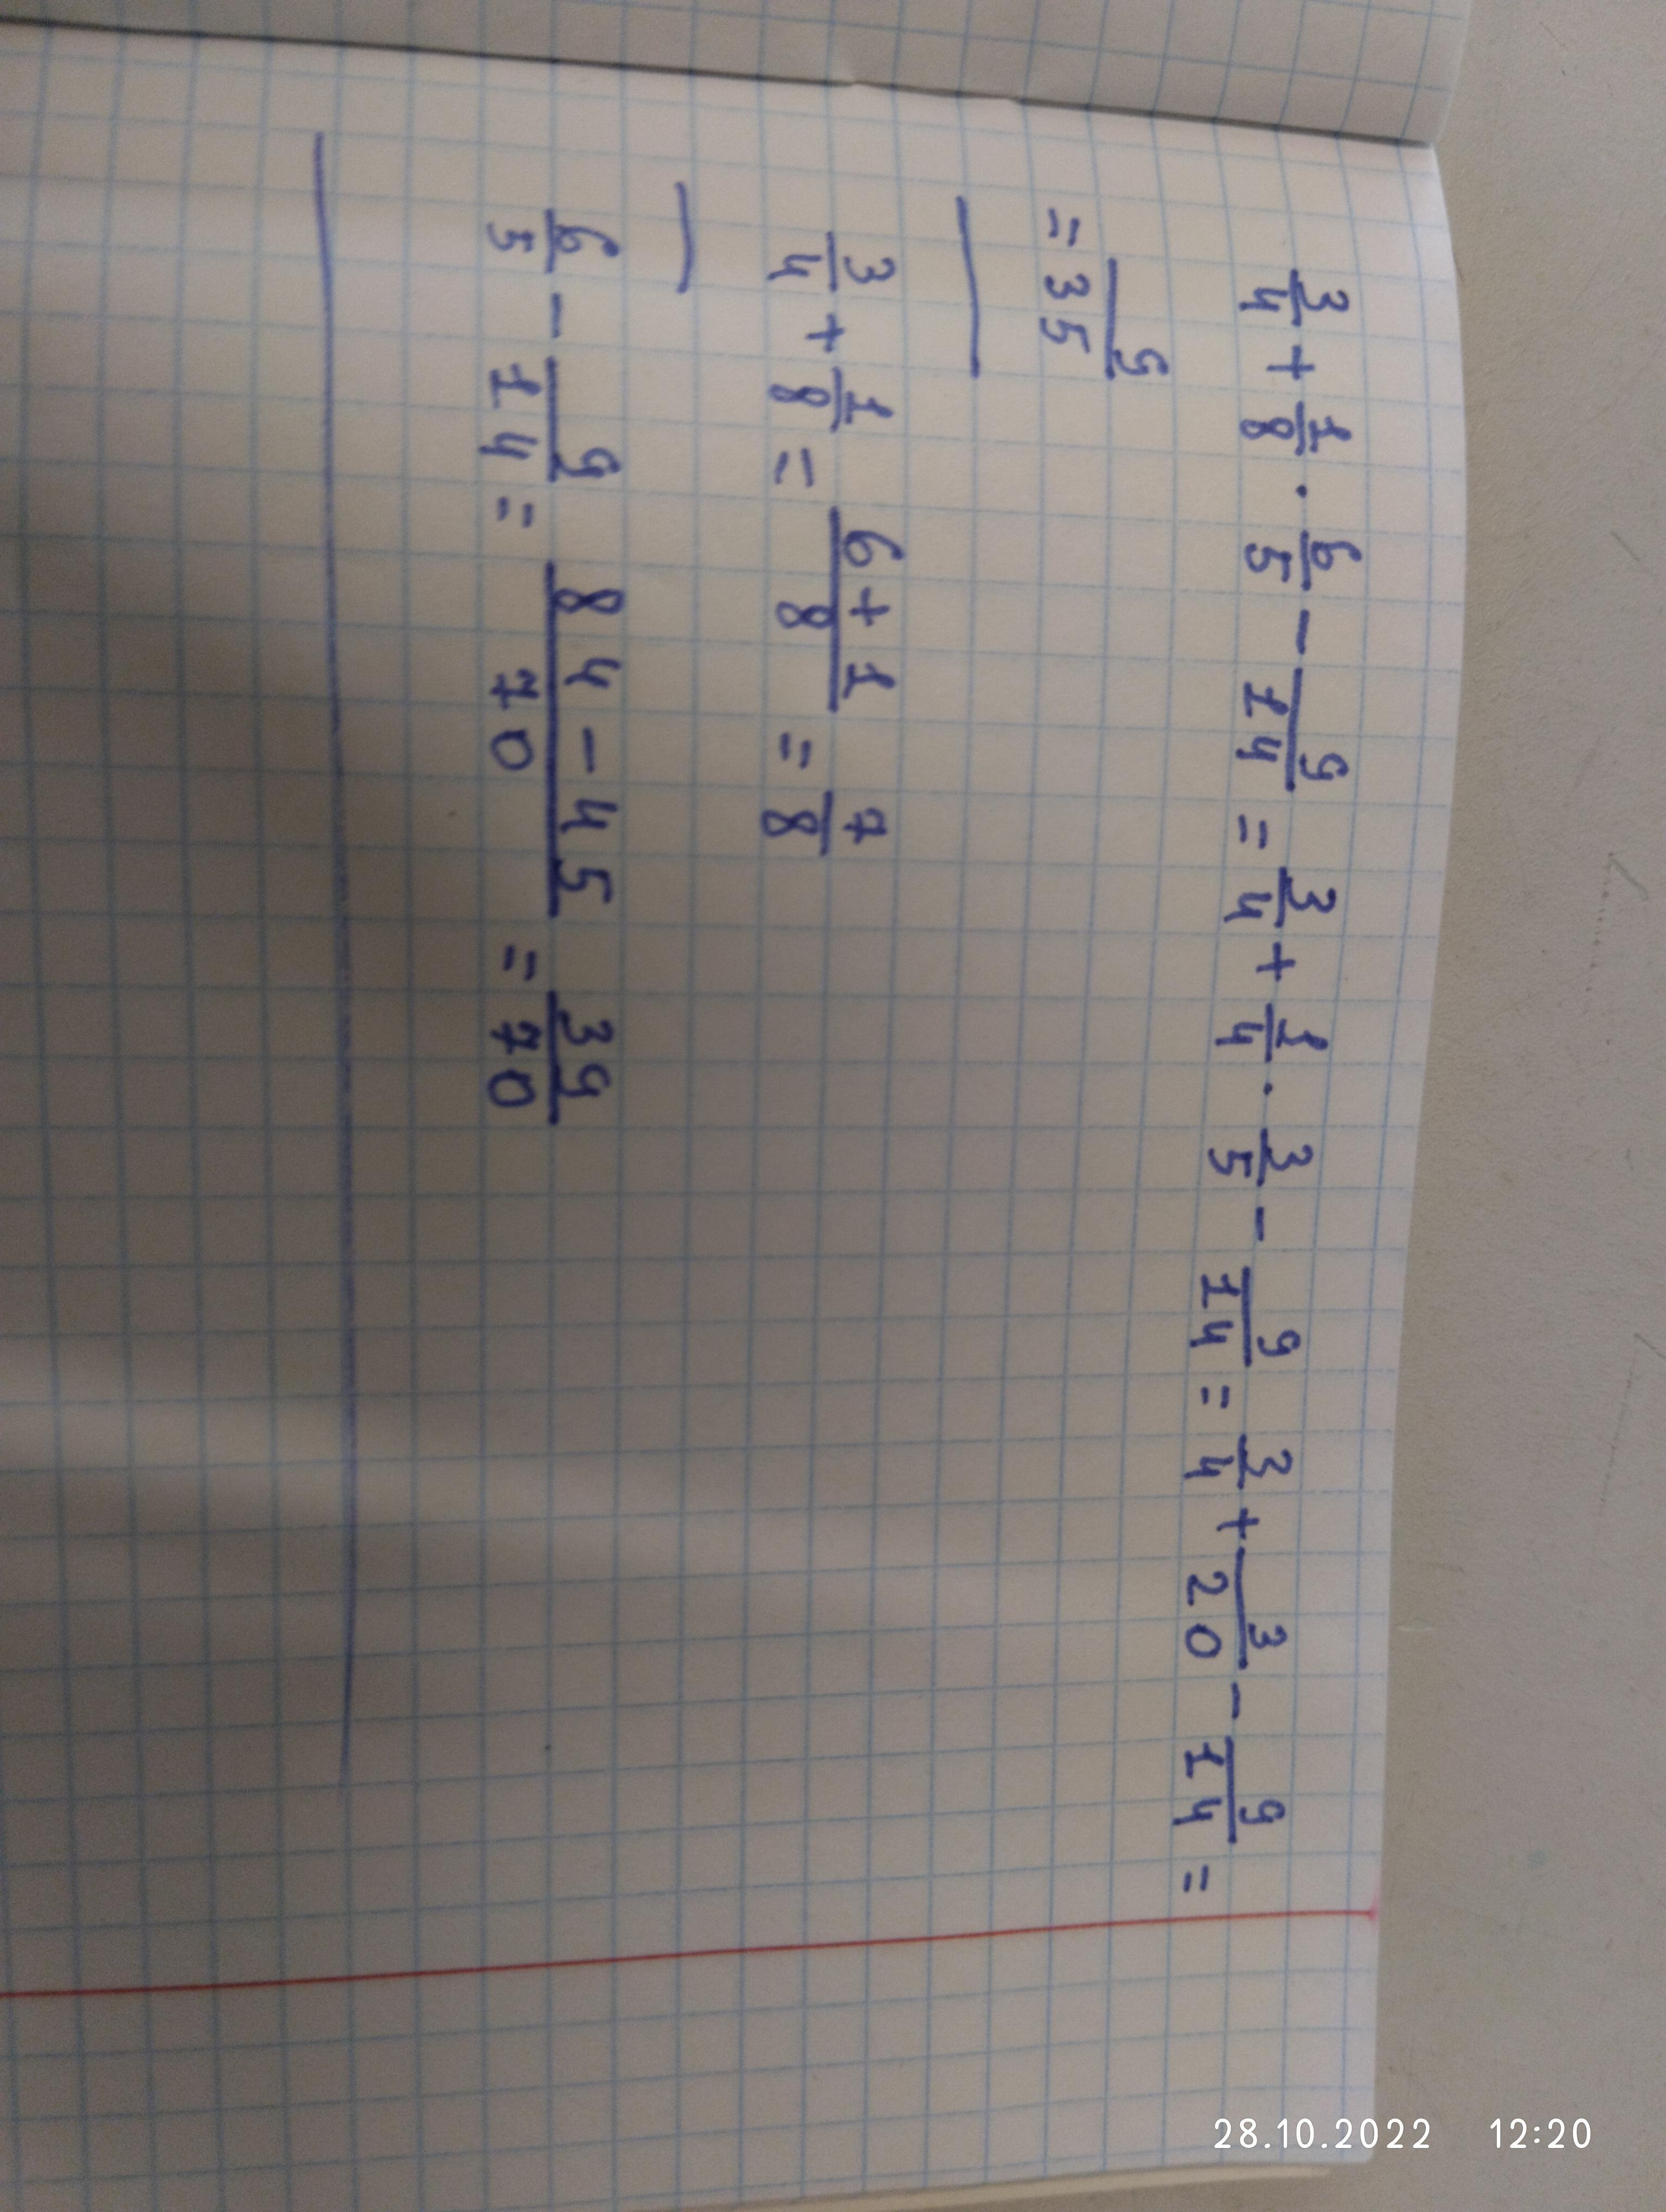 3/4 + 1/8 · 6/5 - 9/14 = 3/4 + 1/4 · 3/5 - 9/14 = 3/4 + 3/20 - 9/14 =
= 9/35
3/4 + 1/8 = 6+1/8 = 7/8
6/5 - 9/14 = 84-45/70 = 39/70
28.10.2022 12:20